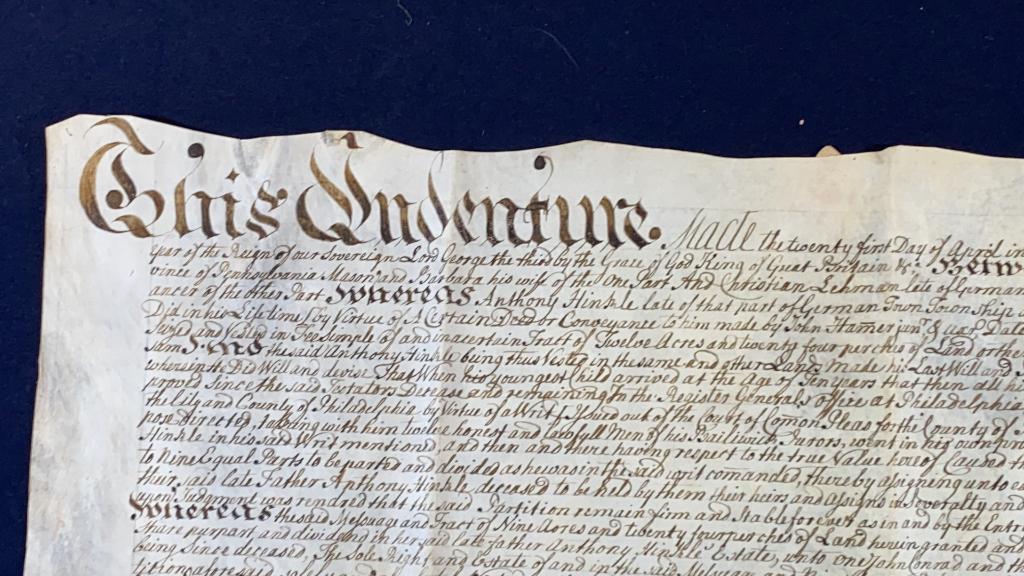 This Indenture. Made the twenty first Day of April in
year of the Reign of our Sovereign Lord George the third by the Grace of God King of Great Britain &c. Betw
vince of Pennsylvania Mason and Barbara his wife of the One Part And Christian Lehman late of German
ancer of the other Part Whereas Anthony Hinkle late of that part of German Town Township
Did in his Lifetime by Virtue of A Certain Deed or Conveyance to him made by John Hamer jun.
and in a certain Tract of Twelve Acres and twenty four perches of Land
And the said Anthony Hinkle being thus Vested in the same and other Lands made his Last Will and
wherein he Did Will and devise That When his youngest Child arrived at the Age of Ten years that then all his
proved Since the said Testators Decease and remaining In the Register Generals Office at Philadelphia
the City and County of Philadelphia by Virtue of a Writ Issued out of the Court of Comon Pleas for the County of
pose Directed, taking with him twelve honest and Lawfull Men of his Bailiwick Jurors, went in his own
Hinkle in his said Writ mentioned, and then and there having respect to the true Value
to Nine Equal Parts to be parted and divided as he was in the said writ comanded, thereby assigning unto
their said late Father Anthony Hinkle deceased to be held by them their heirs and assigns in severalty and
upon Judgment was rendred that the said Partition remain firm and stable forever as in and by the Entr
Whereas the said Messuage and Tract of Nine Acres and twenty four perches of Land herein granted and
share purpart, and dividend in her said late father Anthony Hinkle Estates, unto one John Conrad and
being since deceased, The Sole Right and Estate of and in the said Messuage and